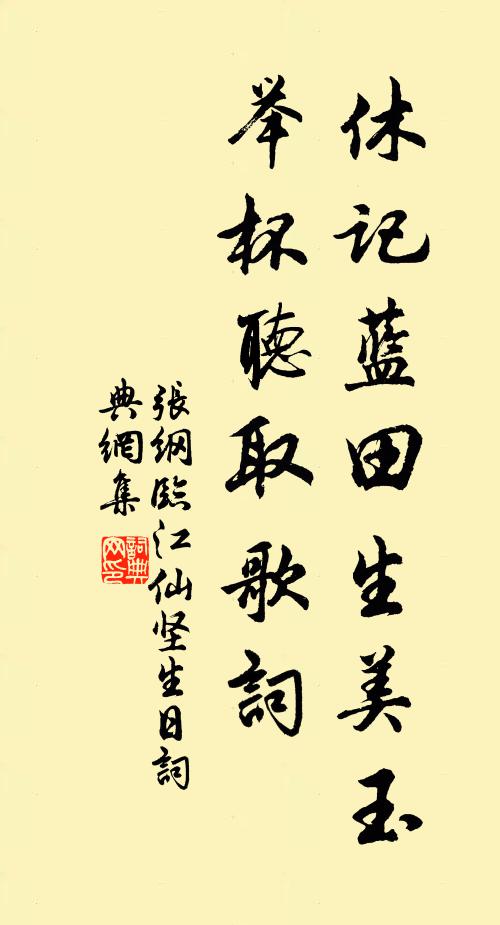 休记蓝田生美玉
举杯聽取歌詞
張纲臨江仙坚生日詞
典網集
詞典
网印